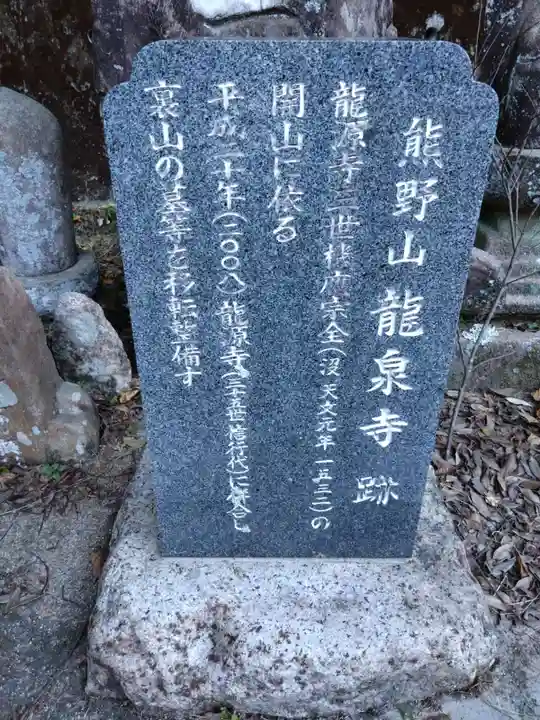 熊野山龍泉寺跡
龍原寺三世機應宗全(没 天文元年一五三二)の
開山に依る
平成二十年(二〇〇八)龍原寺(三十五世 信行代)に併合し
裏山の墓等を移転整備す